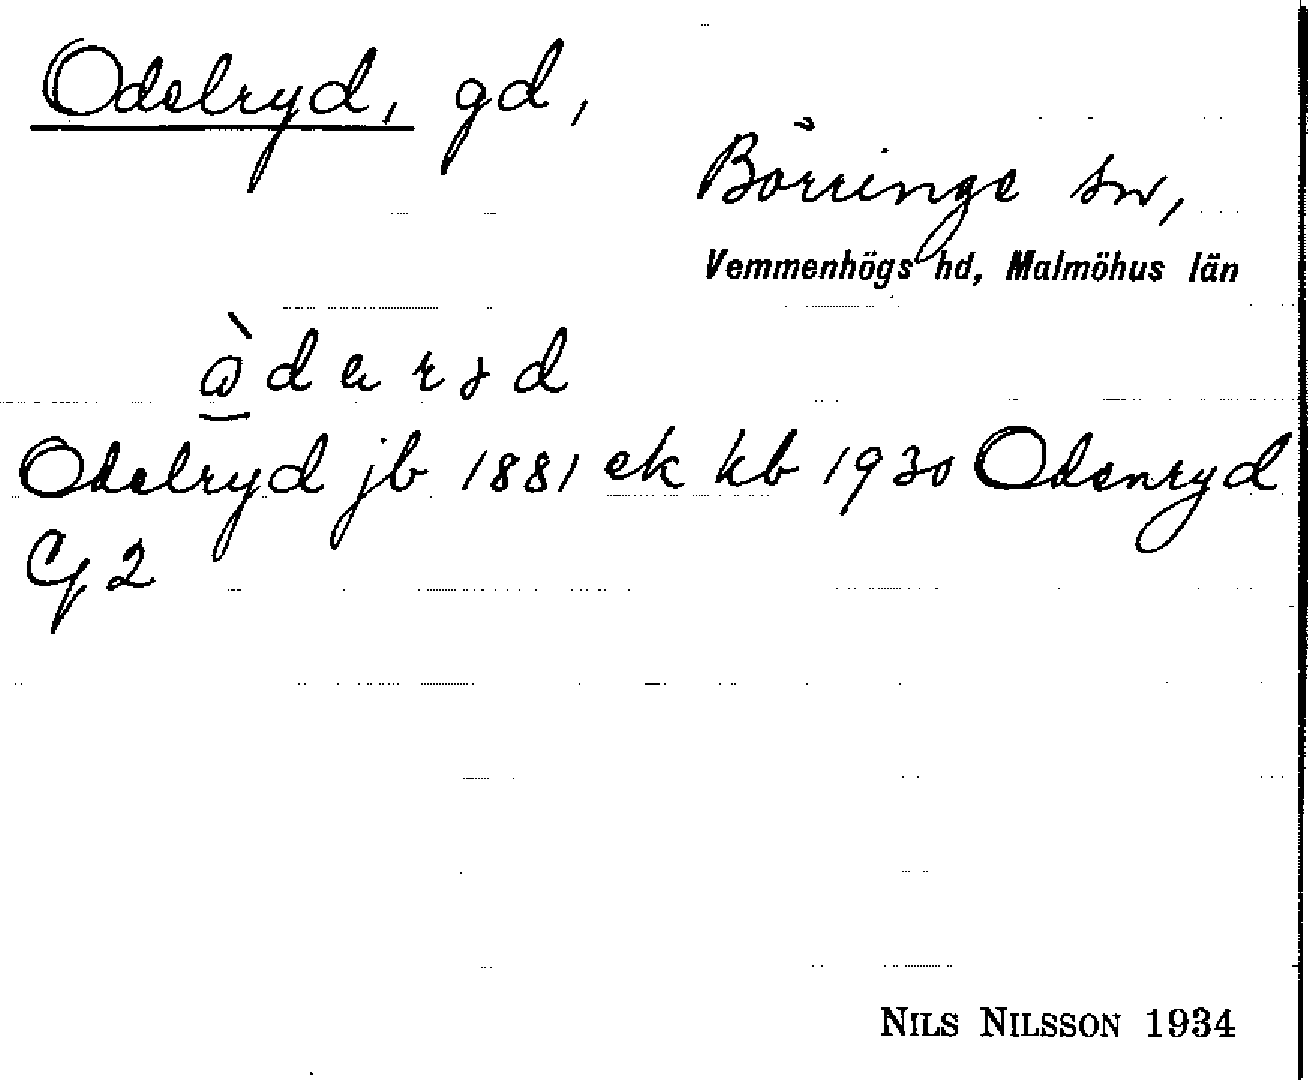 Odelryd, gd,
Börringe sn,
Vemmenhögs hd, Malmöhus län
Odelryd jb 1881 ek kb 1930 Odenryd
G 2
NILS NILSSON 1934